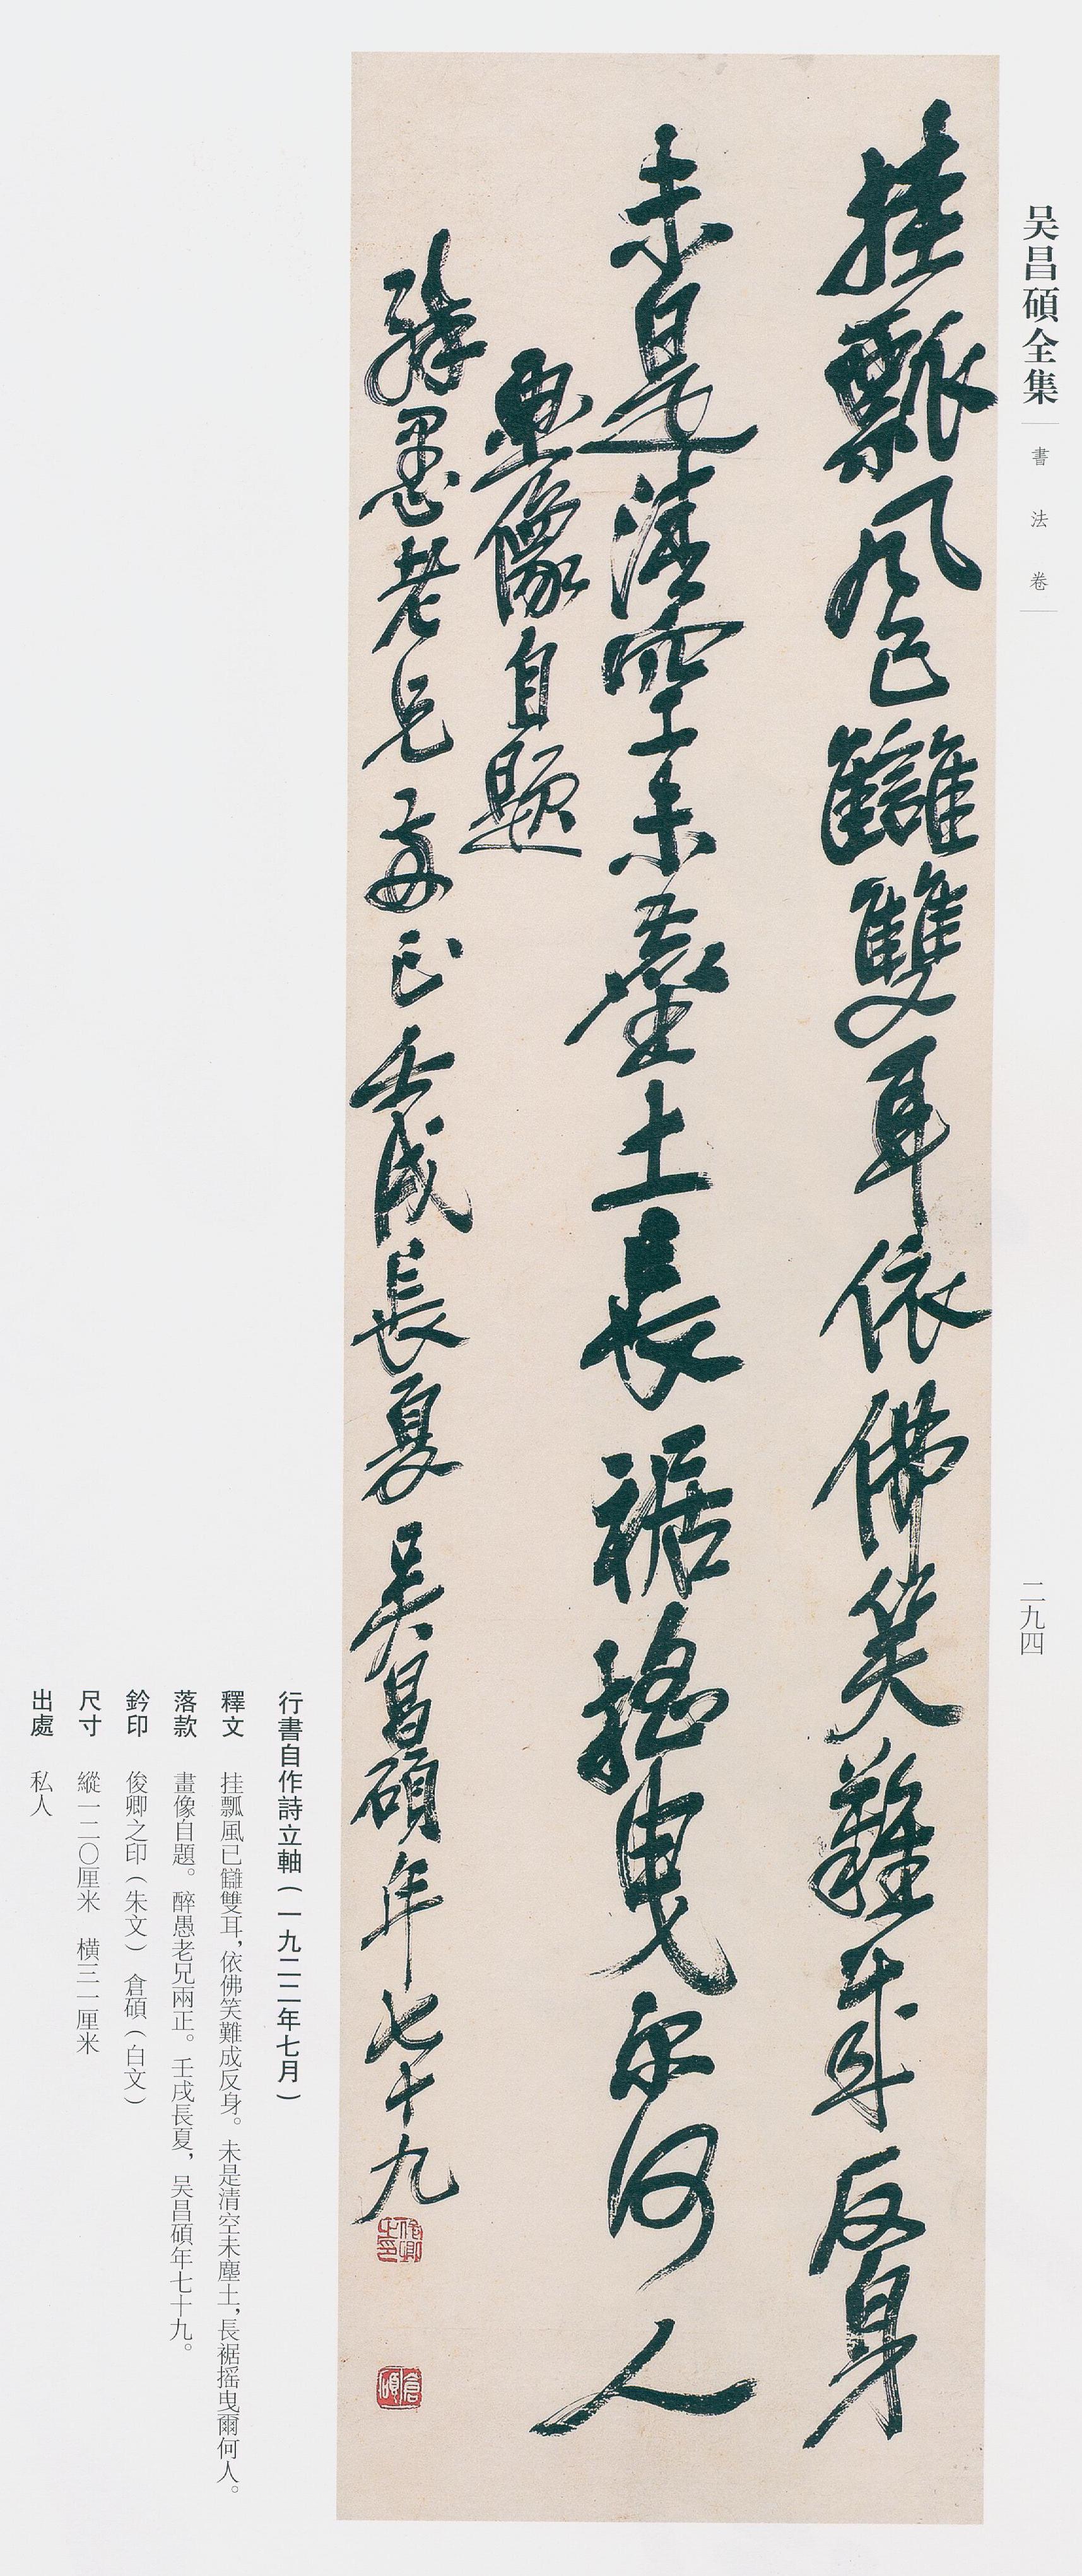 吴昌碩全集
書法卷
二九四
挂瓢風已讎雙耳依佛笑難成反身
未是清空未塵土長裾摇曳尔何人
畫像自題
醉愚老兄兩正壬戌長夏吴昌碩年七十九
俊卿之印
倉碩
行書自作詩立軸（一九二二年七月）
釋文　挂瓢風已讎雙耳，依佛笑難成反身。未是清空未塵土，長裾摇曳爾何人。
落款　畫像自題。醉愚老兄兩正。壬戌長夏，吴昌碩年七十九。
鈐印　俊卿之印（朱文）　倉碩（白文）
尺寸　縱一二〇厘米　横三一厘米
出處　私人